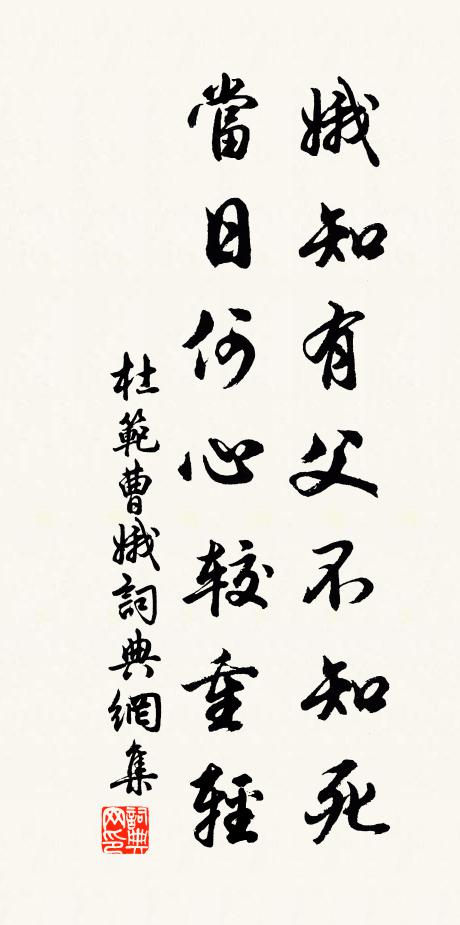 娥知有父不知死
當日何心較重輕
杜範曹娥詞典網集
詞典
网印